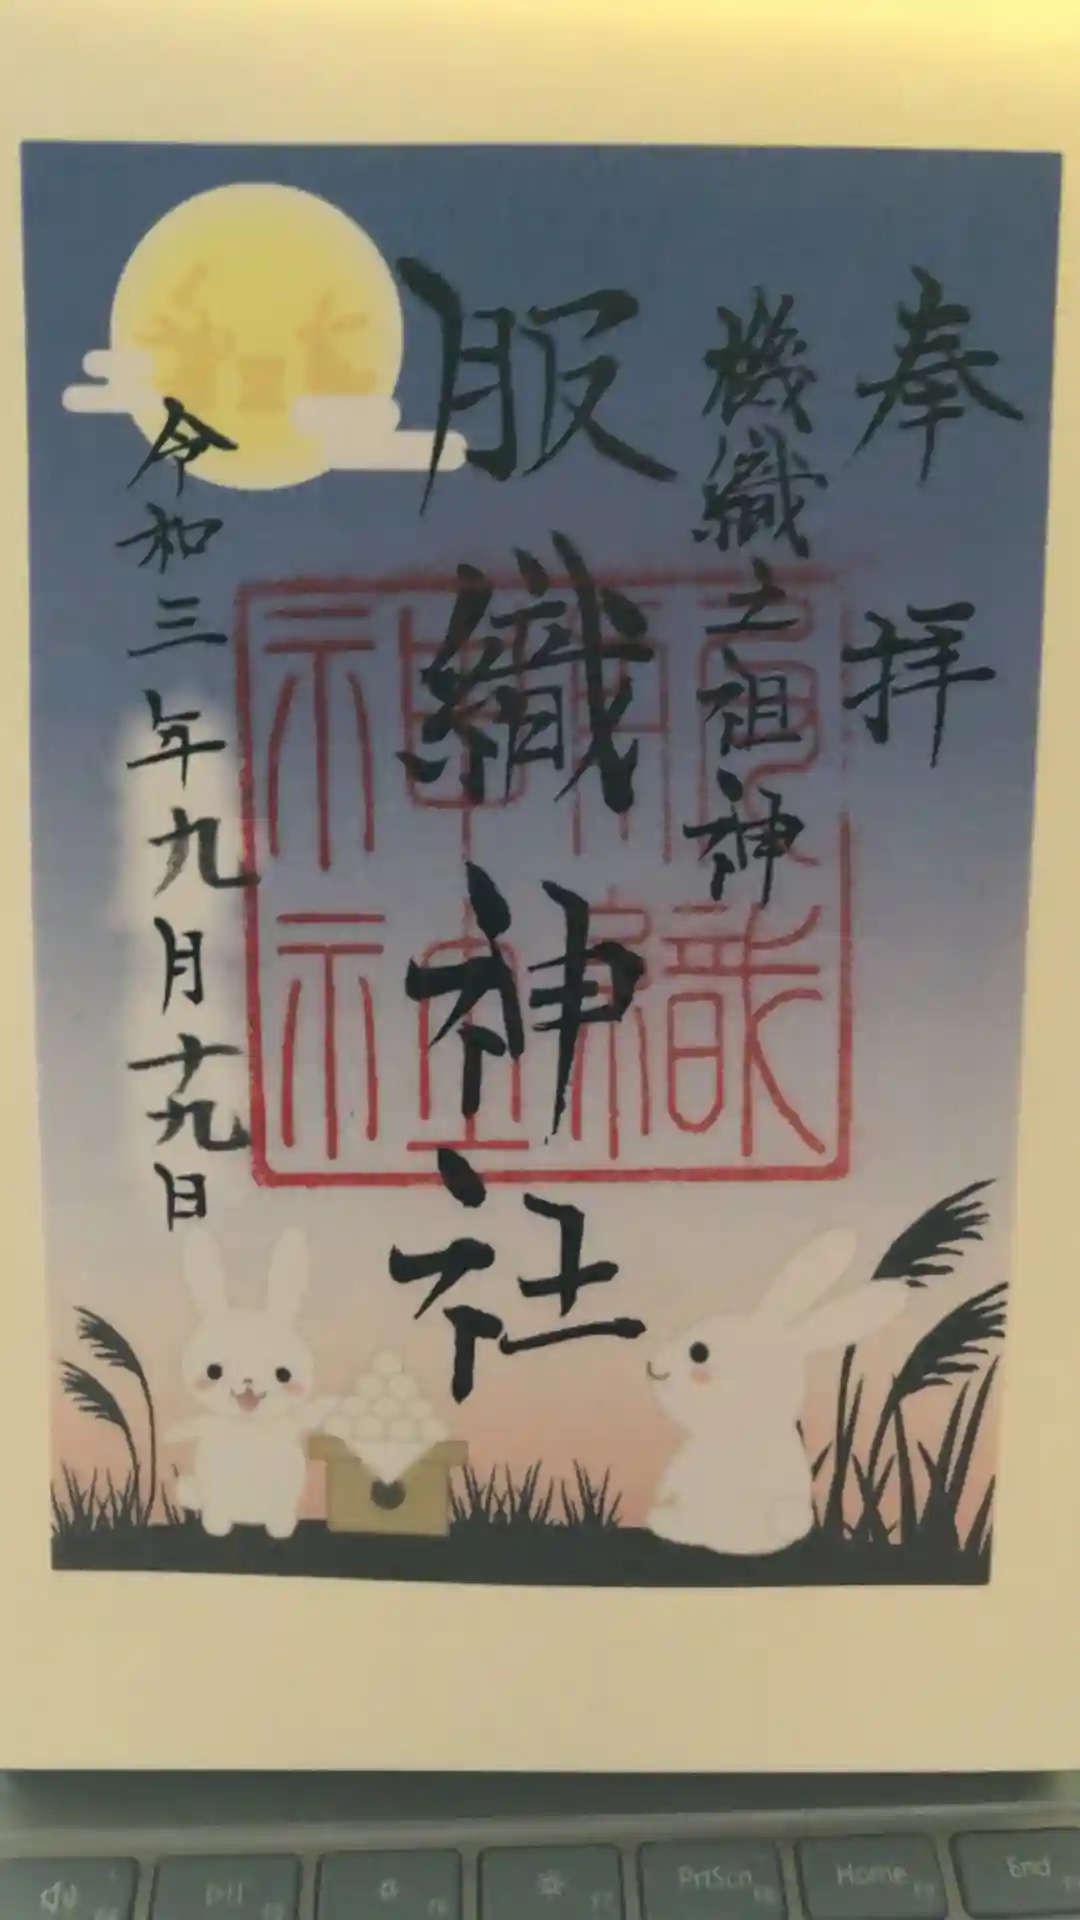 奉拝
機織之祖神
服織神社
令和三年九月十九日
PrtScn
Home
End